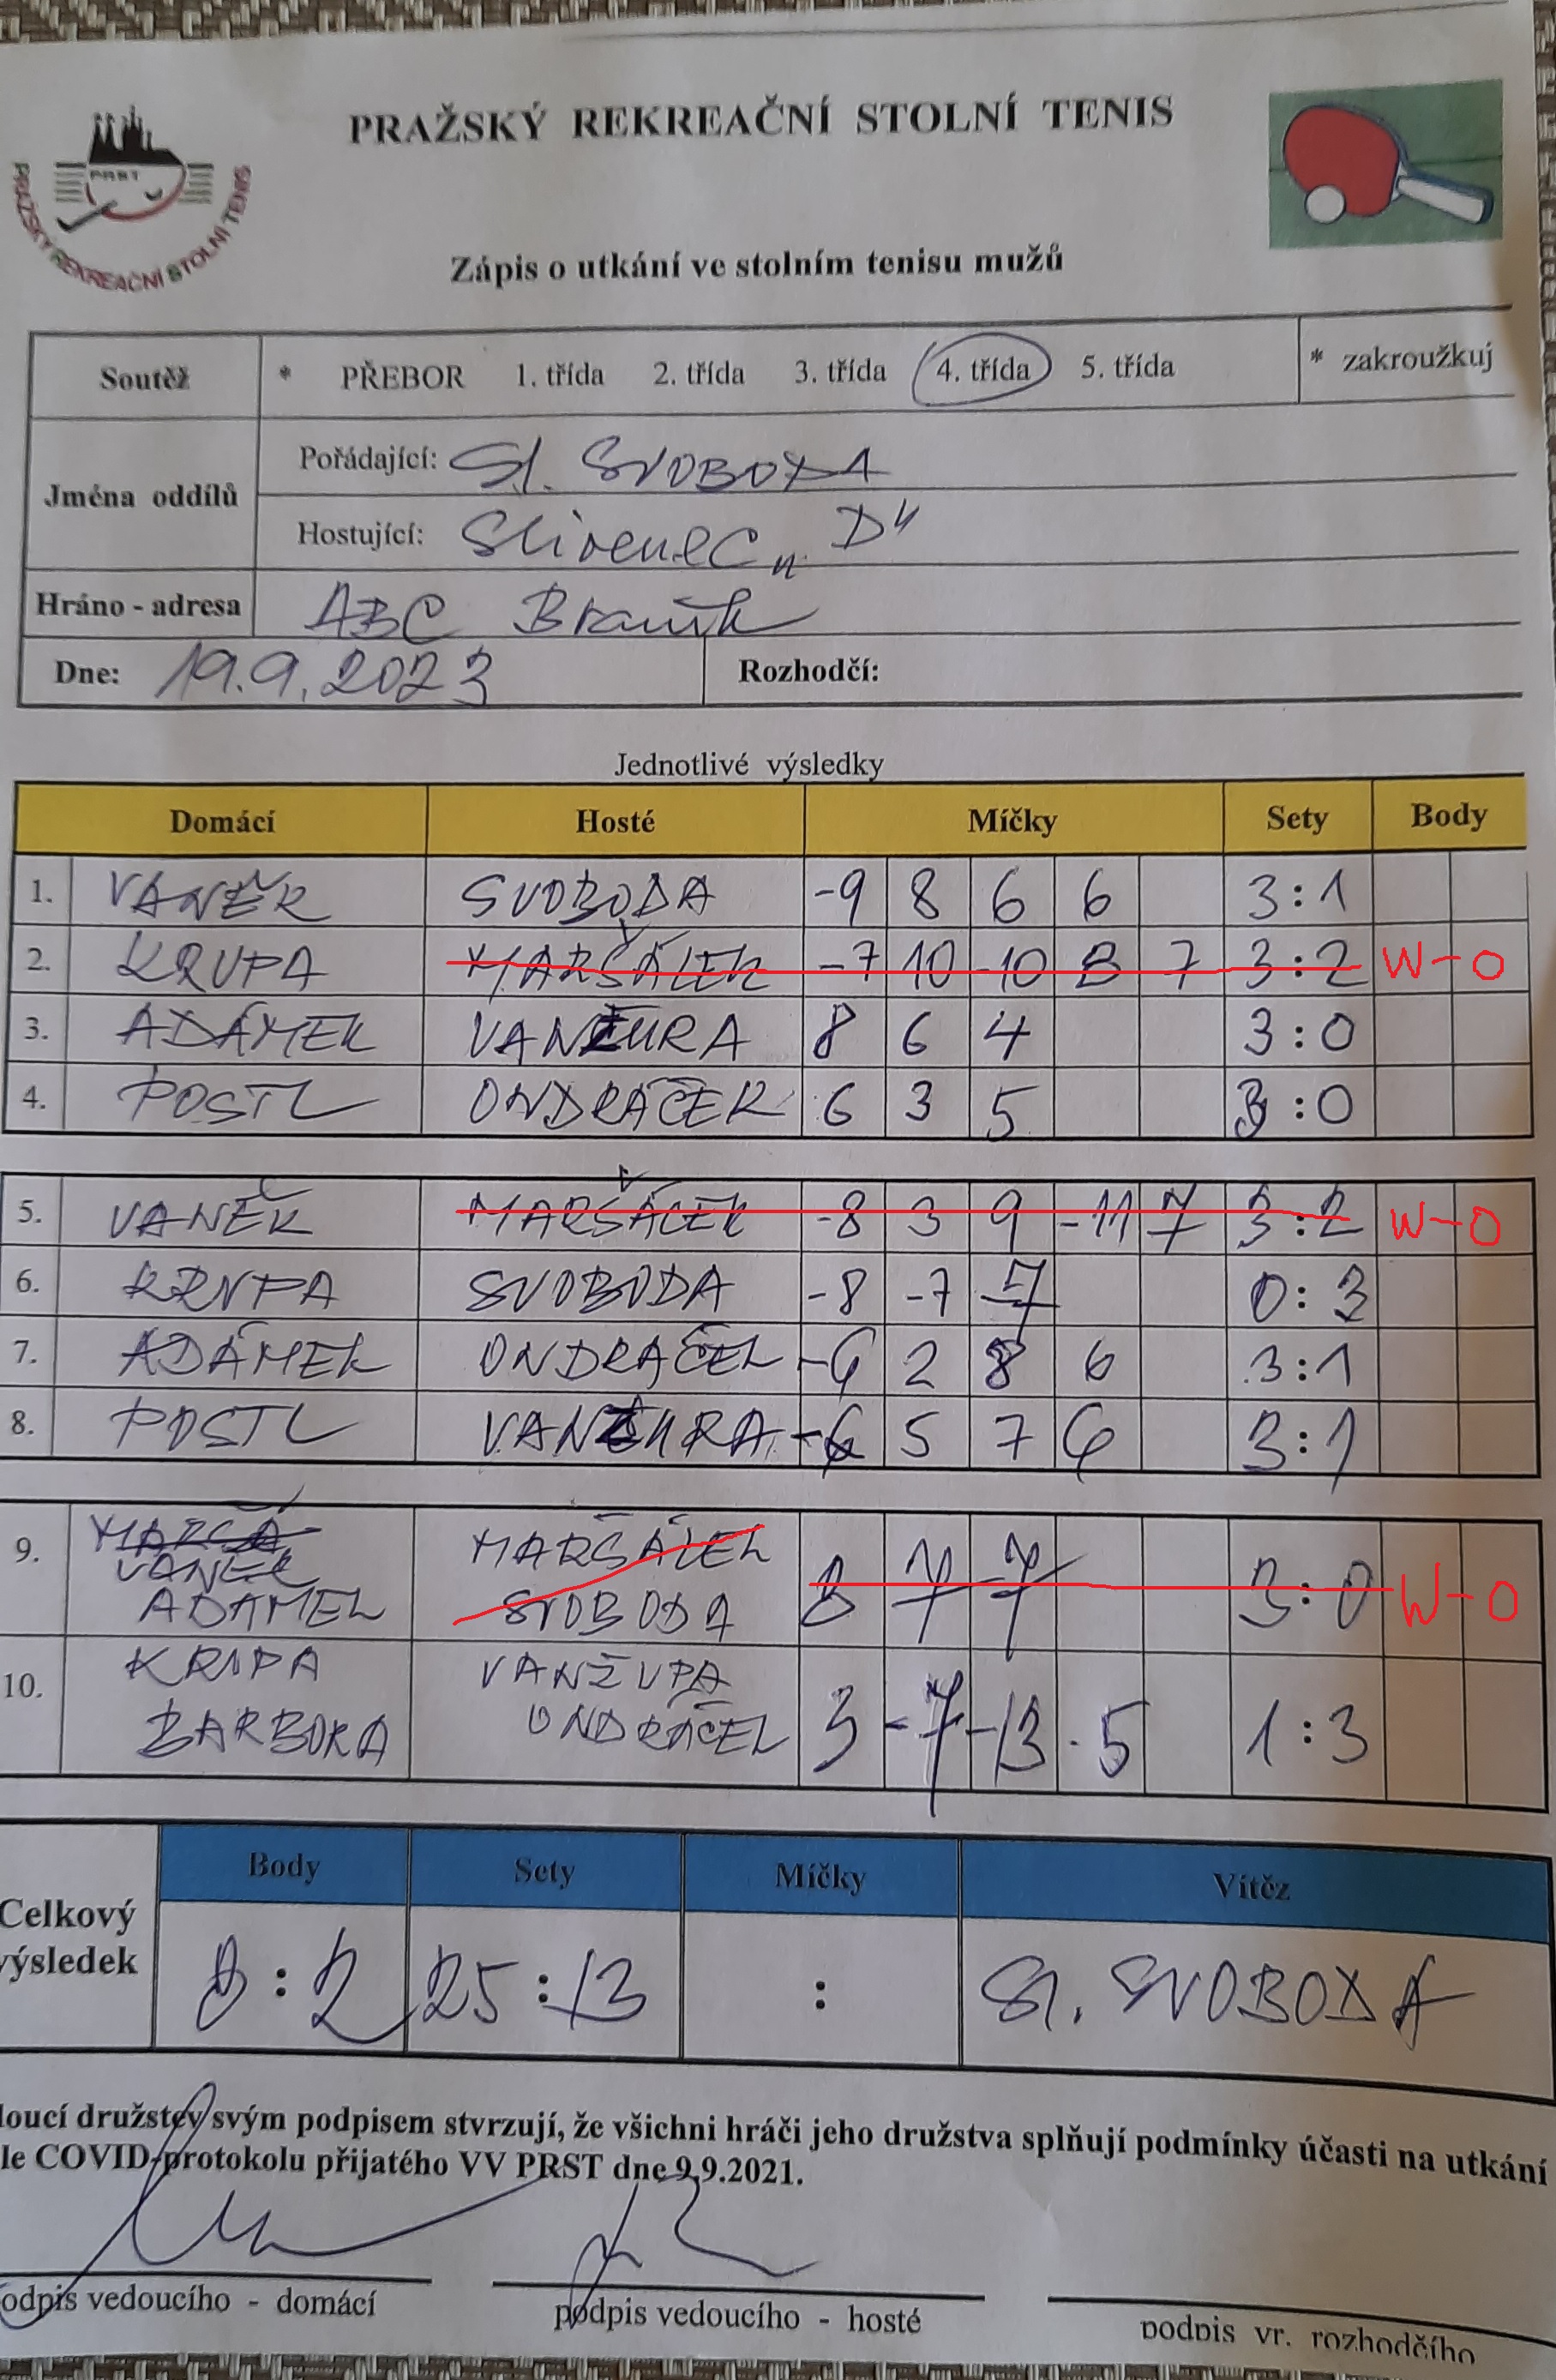 PRAŽSKÝ REKREAČNÍ STOLNÍ TENIS
PRST
PRAŽSKÝ REKREAČNÍ STOLNÍ TENIS
Zápis o utkání ve stolním tenisu mužů
Soutěž * PŘEBOR 1. třída 2. třída 3. třída 4. třída 5. třída * zakroužkuj
Jména oddílů
Pořádající: Sl. SVOBODA
Hostující: Slivenec "D"
Hráno - adresa ABC Braník
Dne: 19.9.2023 Rozhodčí:
Jednotlivé výsledky
Domácí Hosté Míčky Sety Body
1. VANĚK SVOBODA -9 8 6 6 3:1
2. KRUPA MARŠÁLEK -7 10 -10 8 7 3:2 W-O
3. ADÁMEK VANŽURA 8 6 4 3:0
4. POSTL ONDRÁČEK 6 3 5 3:0
5. VANĚK MARŠÁLEK -8 3 9 -11 7 3:2 W-O
6. KRUPA SVOBODA -8 -7 -7 0:3
7. ADÁMEK ONDRÁČEK -6 2 8 6 3:1
8. POSTL VANŽURA -6 5 7 6 3:1
9. MARŠÁ MARŠÁLEK
VANĚK
ADÁMEK SVOBODA 8 7 7 3:0 W-O
10. KRUPA VANŽURA
BARBORA ONDRÁČEK 3 -7 -13 -5 1:3
Celkový výsledek
Body Sety Míčky Vítěz
8:2 25:13 : Sl. SVOBODA
doucí družstev svým podpisem stvrzují, že všichni hráči jeho družstva splňují podmínky účasti na utkání
le COVID-protokolu přijatého VV PRST dne 9.9.2021.
odpis vedoucího - domácí podpis vedoucího - hosté podpis vr. rozhodčího